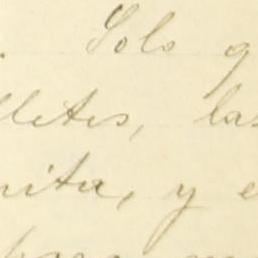 . Solo q
lletes, las
nita, y e